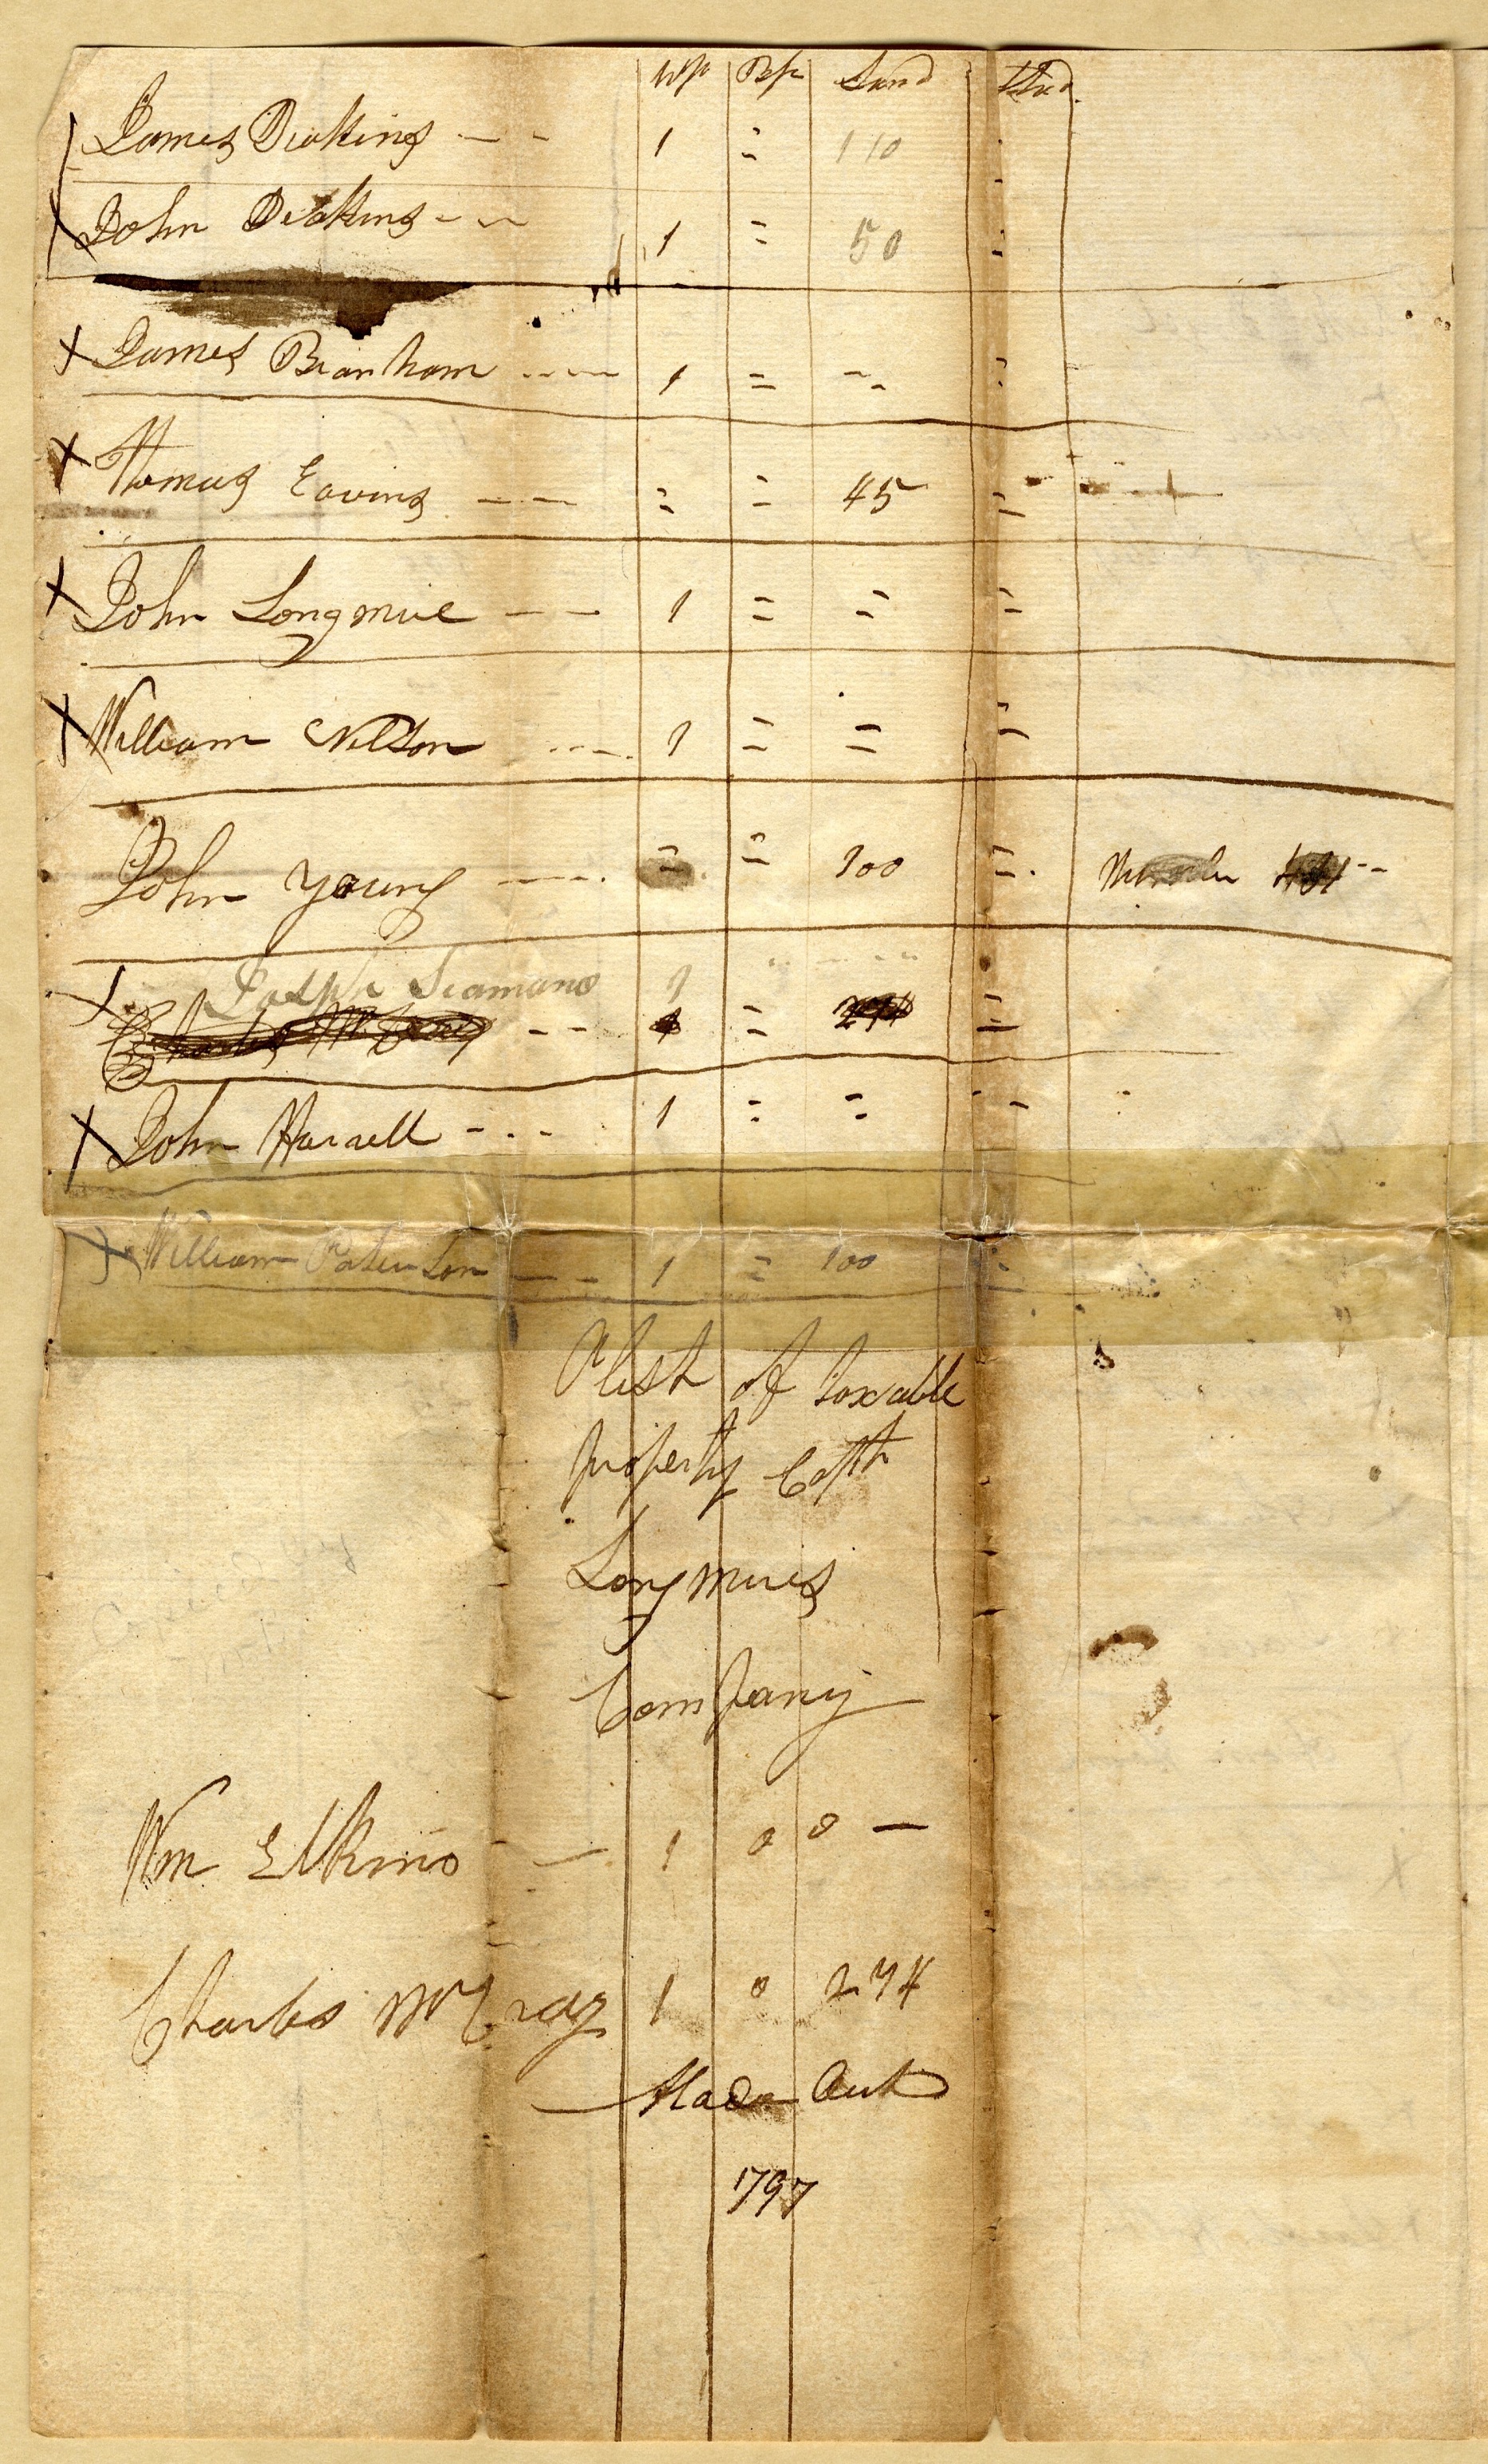 wp Bp Land Stud
James Deakins -- - 1 = 110
John Deakins - - - 1 = 50 =
x James Branham ---- 1 = = =
x Thomas Eavins --- = = 45 =
x John Longmire --- 1 = = =
x William Nelson ---- 1 = = =
John Young ---- = = 100 =
x Joseph Seamans 1
Charles McCray -- 1 = 274 =
x John Harrell - - - 1 = = -
x William Paterson --- 1 = 100 =
A list of taxable
property Capth
Longmires
Company
Wm Elkins - 1 0 0 -
Charles McCray 1 0 274
Made Out
1797